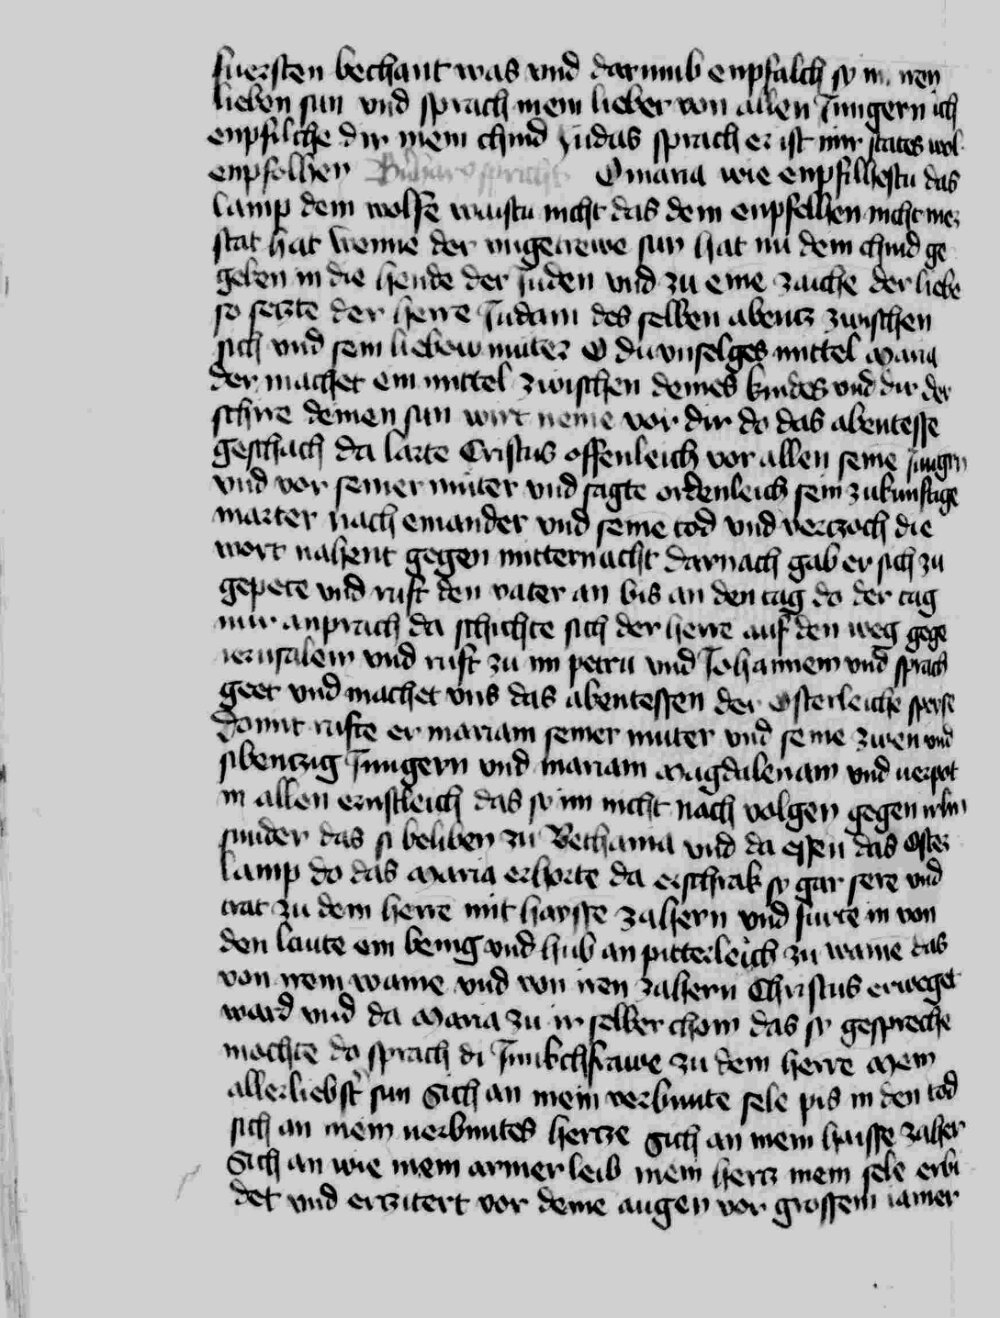 fuersten bechant was vnd darumb enpfalch sy in iren
lieben sun vnd sprach mein lieber von allen Jungern ich
enpfilche dir mein chind Judas sprach er ist mir states wol
enpfolhen Richardus spricht O maria wie enpfilhestu das
lamp dem wolfe waistu nicht das dem enpfelhen nicht mer
stat hat wenne der vngetrewe sun hat nu dem chind ge
geben in die hende der Juden vnd zu eine zaiche der liebe
so setzte der herre Judam des selben abentz zwischen
sich vnd sein liebew muter O du vnselges mittel Maria
der machet ein mittel zwischen deines kindes vnd dir der
schire deinen sun wirt neme vor dir do das abentesse
geschach da larte Cristus offenleich vor allen seine Jungern
vnd vor seiner muter vnd sagte ordenleich sein zukunftige
marter nach einander vnd seine tod vnd vertzoch die
wort nahent gegen mitternacht darnach gab er sich zu
gepete vnd ruft den vater an bis an den tag do der tag
nur anprach da schichte sich der herre auf den weg gege
ierusalem vnd ruft zu im petru vnd Johannem vnd sprach
geet vnd machet vns das abentessen der osterleiche speyse
domit rufte er mariam seiner muter vnd seine zwen vnd
sibentzig Jungern vnd mariam Magdalenam vnd verpot
in allen ernstleich das sy im nicht nach volgen gegen irlm
sunder das si beliben zu Bethania vnd da essen das Oster
lamp do das Maria erhorte da erschrak sy gar sere vnd
trat zu dem herre mit haysse zahern vnd furte in von
den laute ein benig vnd hub an pitterleich zu waine das
von irem waine vnd von iren zahern Christus erweget
ward vnd da Maria zu ir selber chom das sy gespreche
mochte do sprach di Junkchfrawe zu dem herre Mein
allerliebster sun Sich an mein verbunte sele pis in den tod
sich an mein verbuntes hertze Sich an mein haisse zaher
Sich an wie mein armer leib mein hertz mein sele erbi
det vnd ertzitert vor deine augen vor grossem iamer